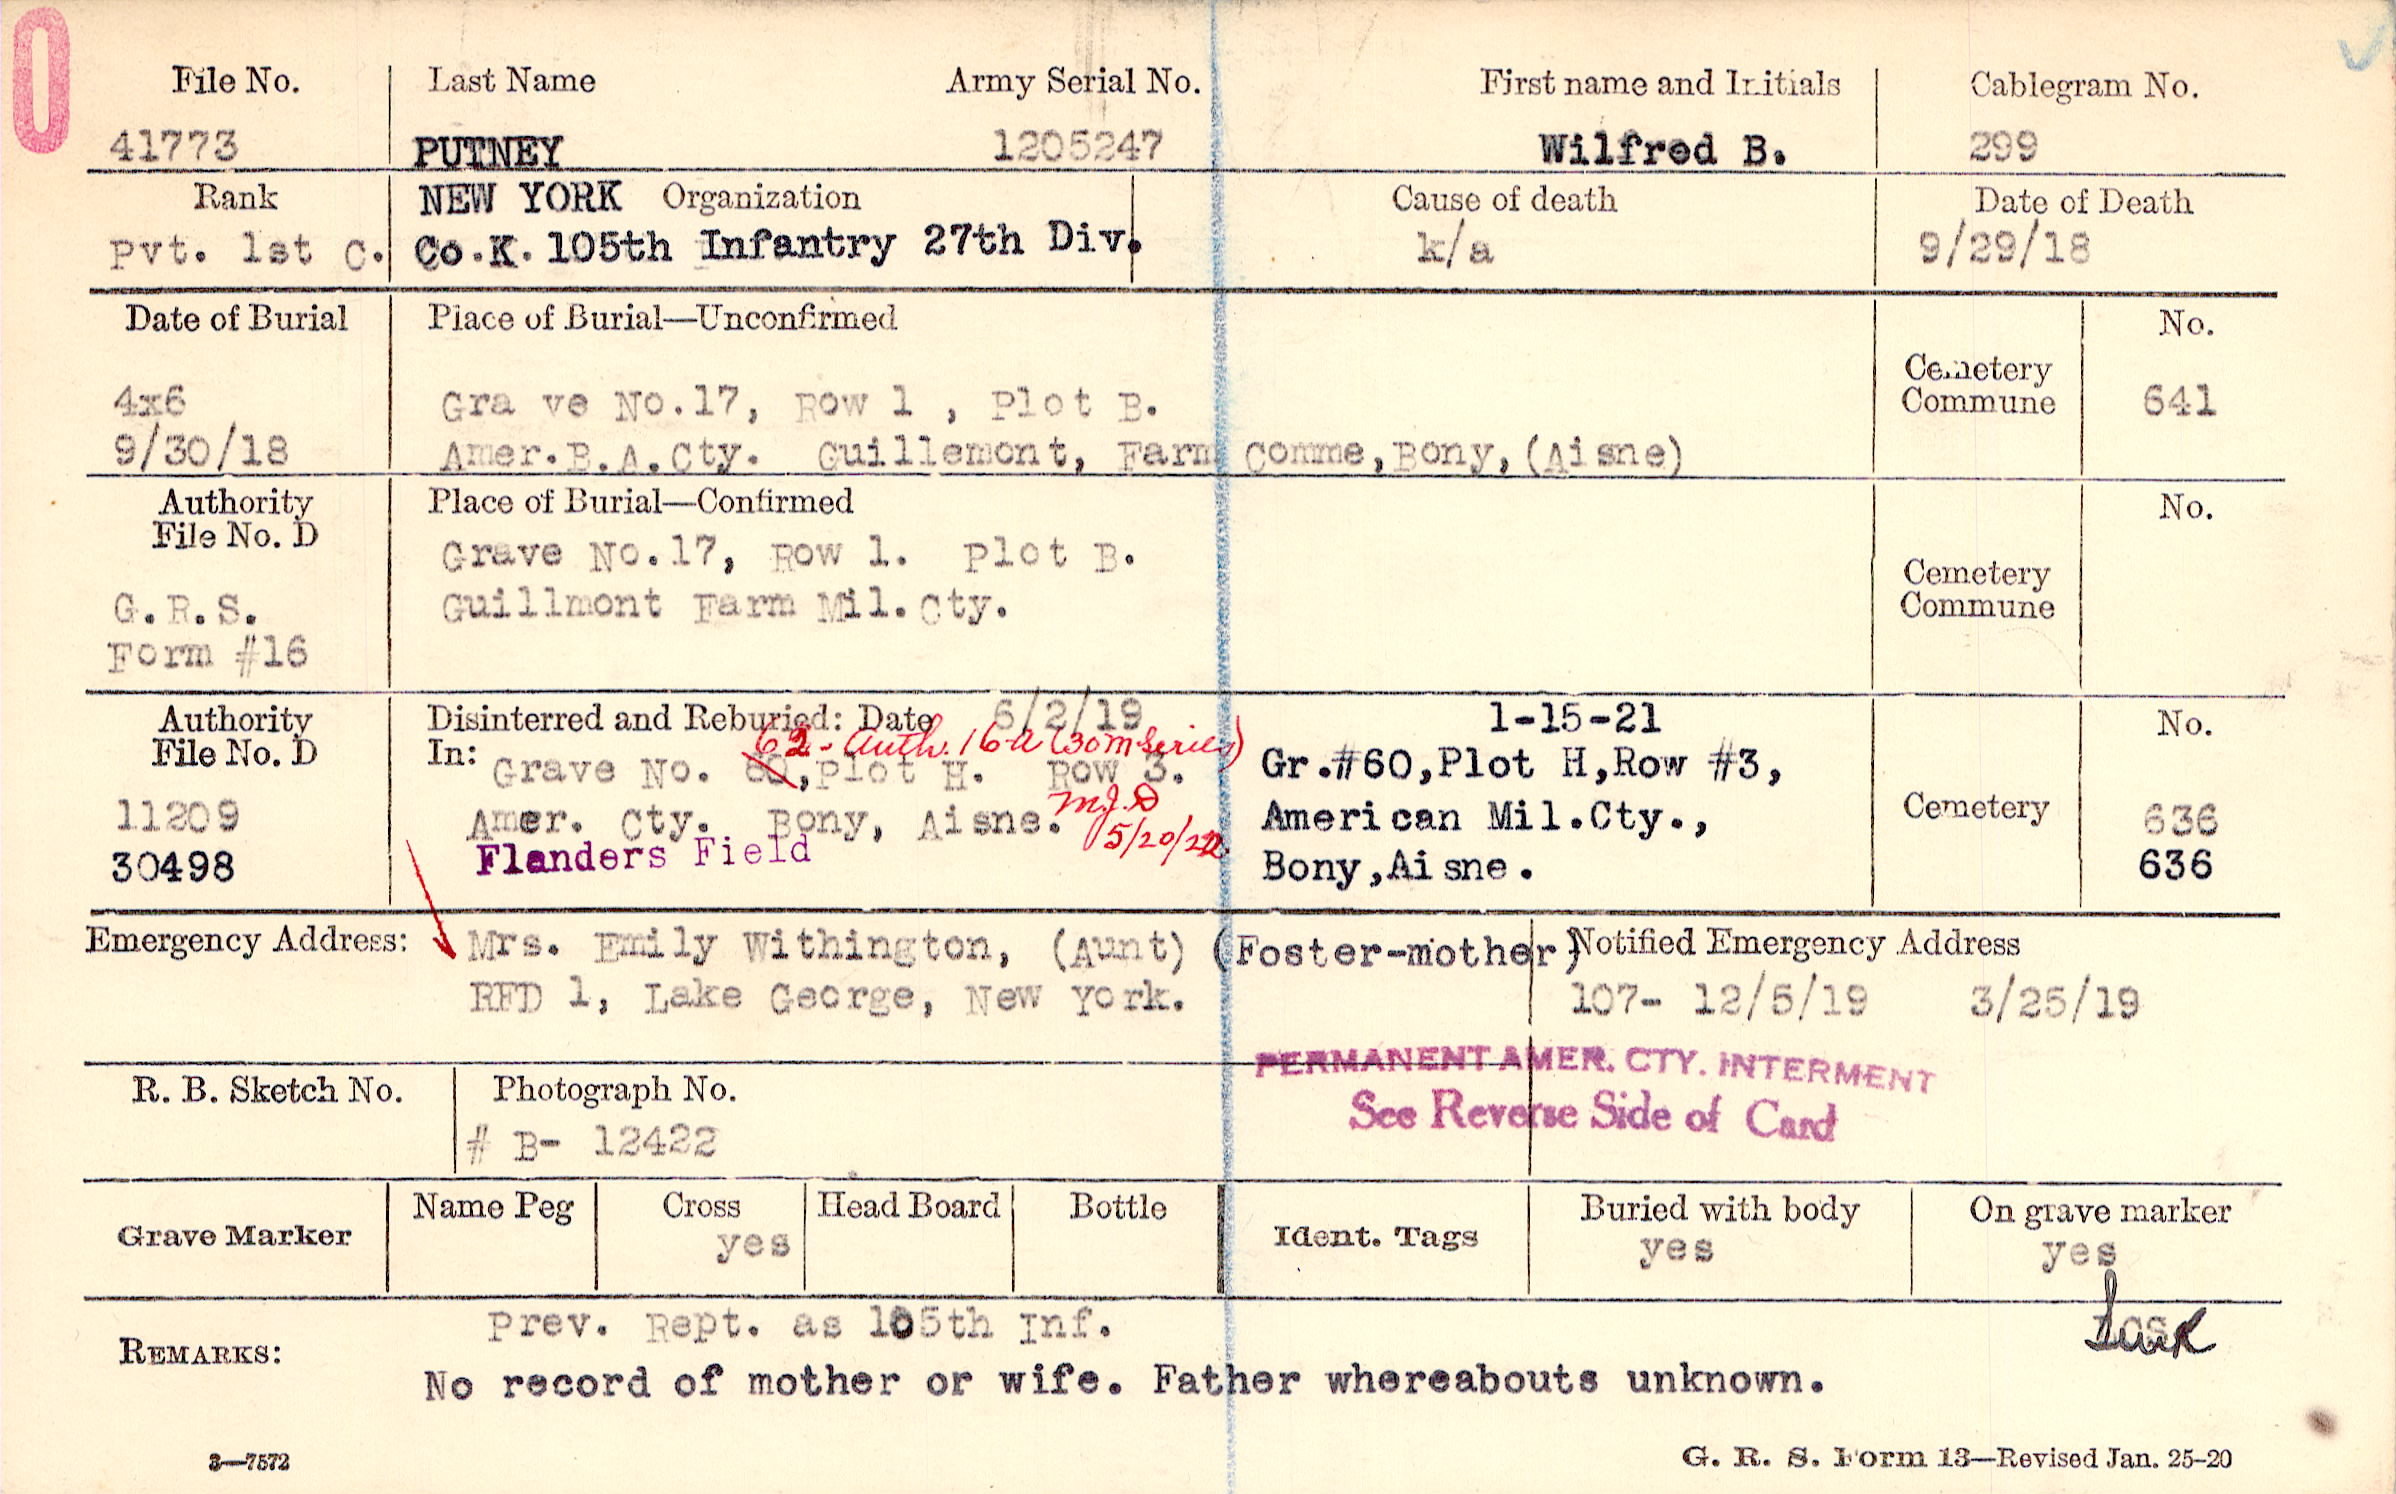 0
File No. Last Name Army Serial No. First name and Initials Cablegram No.
41773 PUTNEY 1205247 Wilfred B. 299
Rank NEW YORK Organization Cause of death Date of Death
Pvt. 1st C. Co.K. 105th Infantry 27th Div. k/a 9/29/18
Date of Burial Place of Burial—Unconfirmed No.
Cemetery
4x6 Gra ve No.17, Row 1 , Plot B. Commune 641
9/30/18 Amer.B.A.Cty. Guillemont, Farm Comme,Bony,(Aisne)
Authority Place of Burial—Confirmed No.
File No. D
Grave No.17, Row 1. Plot B.
Cemetery
G.R.S. Guillmont Farm Mil.Cty. Commune
Form #16
Authority Disinterred and Reburied: Date 6/2/19 1-15-21 No.
62- Auth. 16-a (30m series)
File No. D In: Grave No. ,Plot H. Row 3. Gr.#60,Plot H,Row #3,
M.J.D
11209 Amer. Cty. Bony, Aisne. American Mil.Cty., Cemetery 636
5/20/22
30498 Flanders Field Bony,Aisne. 636
Emergency Address: Mrs. Emily Withington, (Aunt) (Foster-mother) Notified Emergency Address
RFD 1, Lake George, New York. 107- 12/5/19 3/25/19
PERMANENT AMER. CTY. INTERMENT
R. B. Sketch No. Photograph No. See Reverse Side of Card
# B- 12422
Grave Marker Name Peg Cross Head Board Bottle Ident. Tags Buried with body On grave marker
yes yes yes
Prev. Rept. as 105th Inf.
REMARKS:
No record of mother or wife. Father whereabouts unknown.
3—7572 G. R. S. Form 13—Revised Jan. 25-20